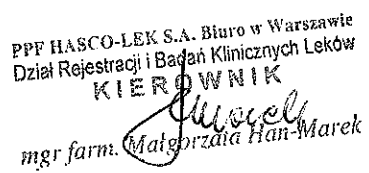 PPF HASCO-LEK S.A. Biuro w Warszawie
Dział Rejestracji i Badań Klinicznych Leków
KIEROWNIK
mgr farm. Małgorzata Han-Marek